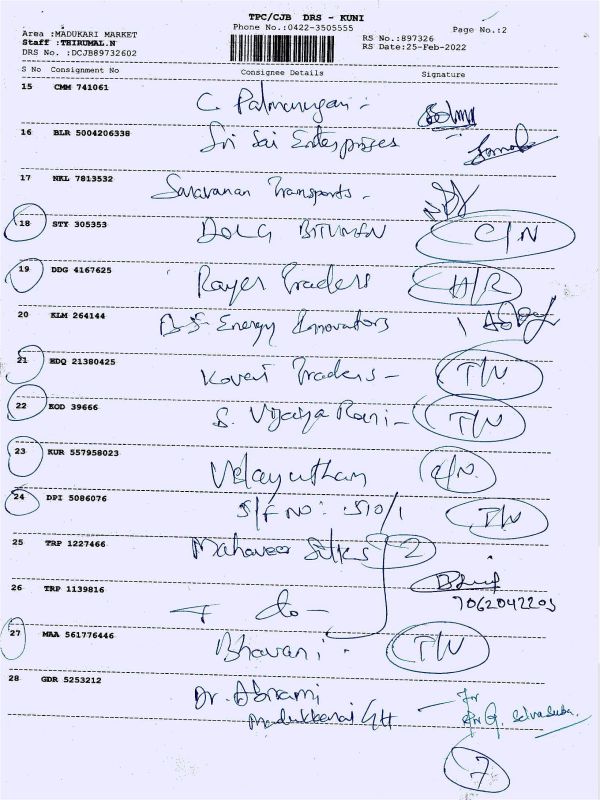 TPC/CJB DRS - KUNI
Phone No.:0422-3505555
Page No.:2
Area :MADUKARI MARKET
Staff :THIRUMAL.N
DRS No. :DCJB89732602
RS No.:897326
RS Date:25-Feb-2022
S No Consignment No Consignee Details Signature
15 CMM 741061 C. Palmurugan -
16 BLR 5004206338 Sri Sai Enterprises
17 NKL 7813532 Saravanan Transports -
18 STY 305353 BITUMEN C/N
19 DDG 4167625 Rayer Traders
20 KLM 264144 Energy Innovators
21 HDQ 21380425 Kovai Traders - T/N
22 KOD 39666 S. Vijaya Rani - T/N
23 KUR 557958023 Velayutham C/N
24 DPI 5086076 S/F NO: 510/1
25 TRP 1227466 Mahaveer Silks 2
7062042203
26 TRP 1139816 do -
27 MAA 561776446 Bhavani - T/N
28 GDR 5253212 Dr. Abirami
Madukkarai GH
for
Selvasuba.
7